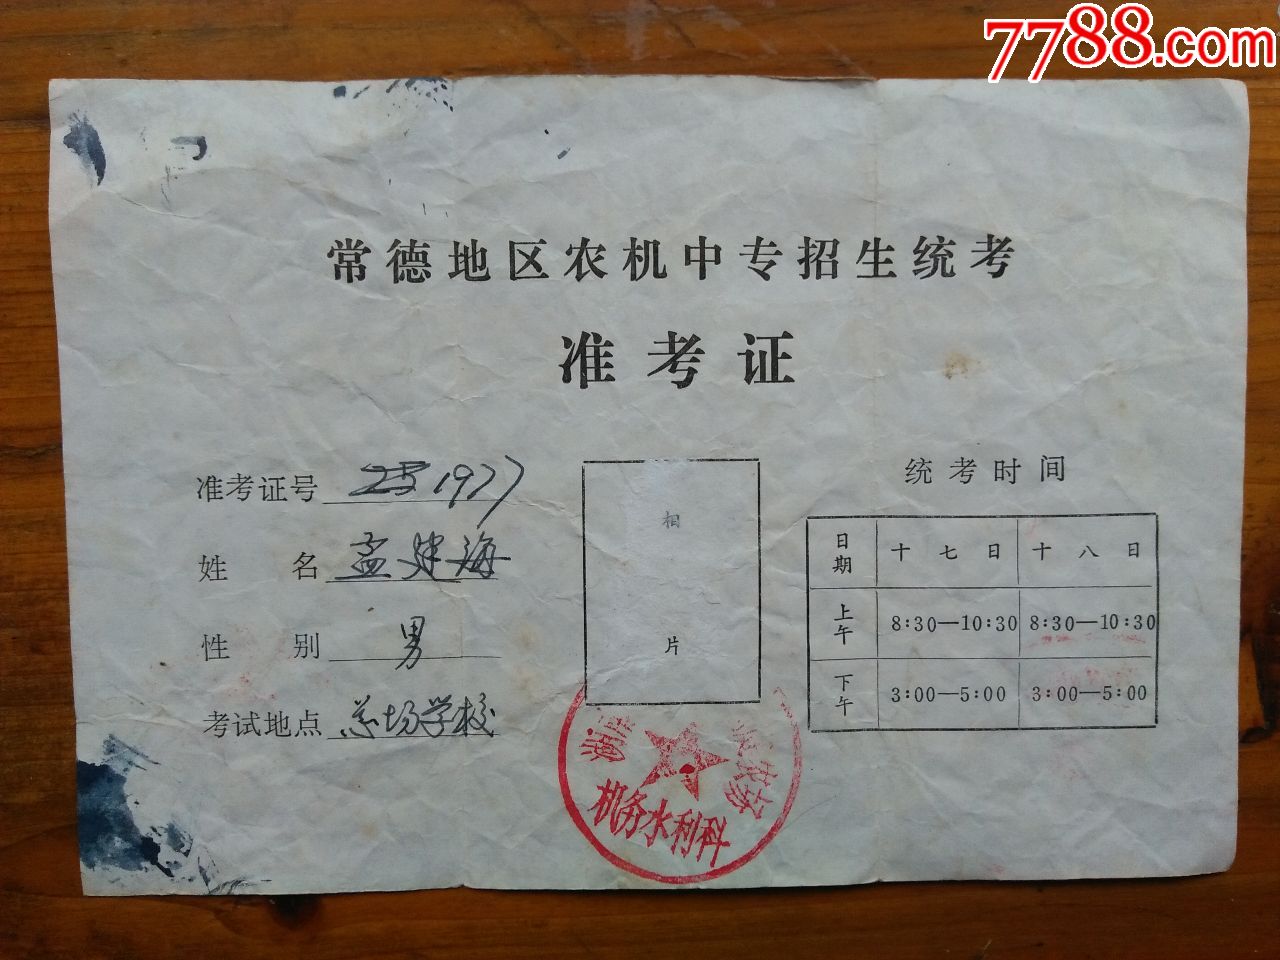 7788.com
常德地区农机中专招生统考
准考证
准考证号 1977
姓名 孟建海
性别 男
考试地点 总场学校
相
片
统考时间
日期 十七日 十八日
上午 8:30—10:30 8:30—10:30
下午 3:00—5:00 3:00—5:00
机务水利科